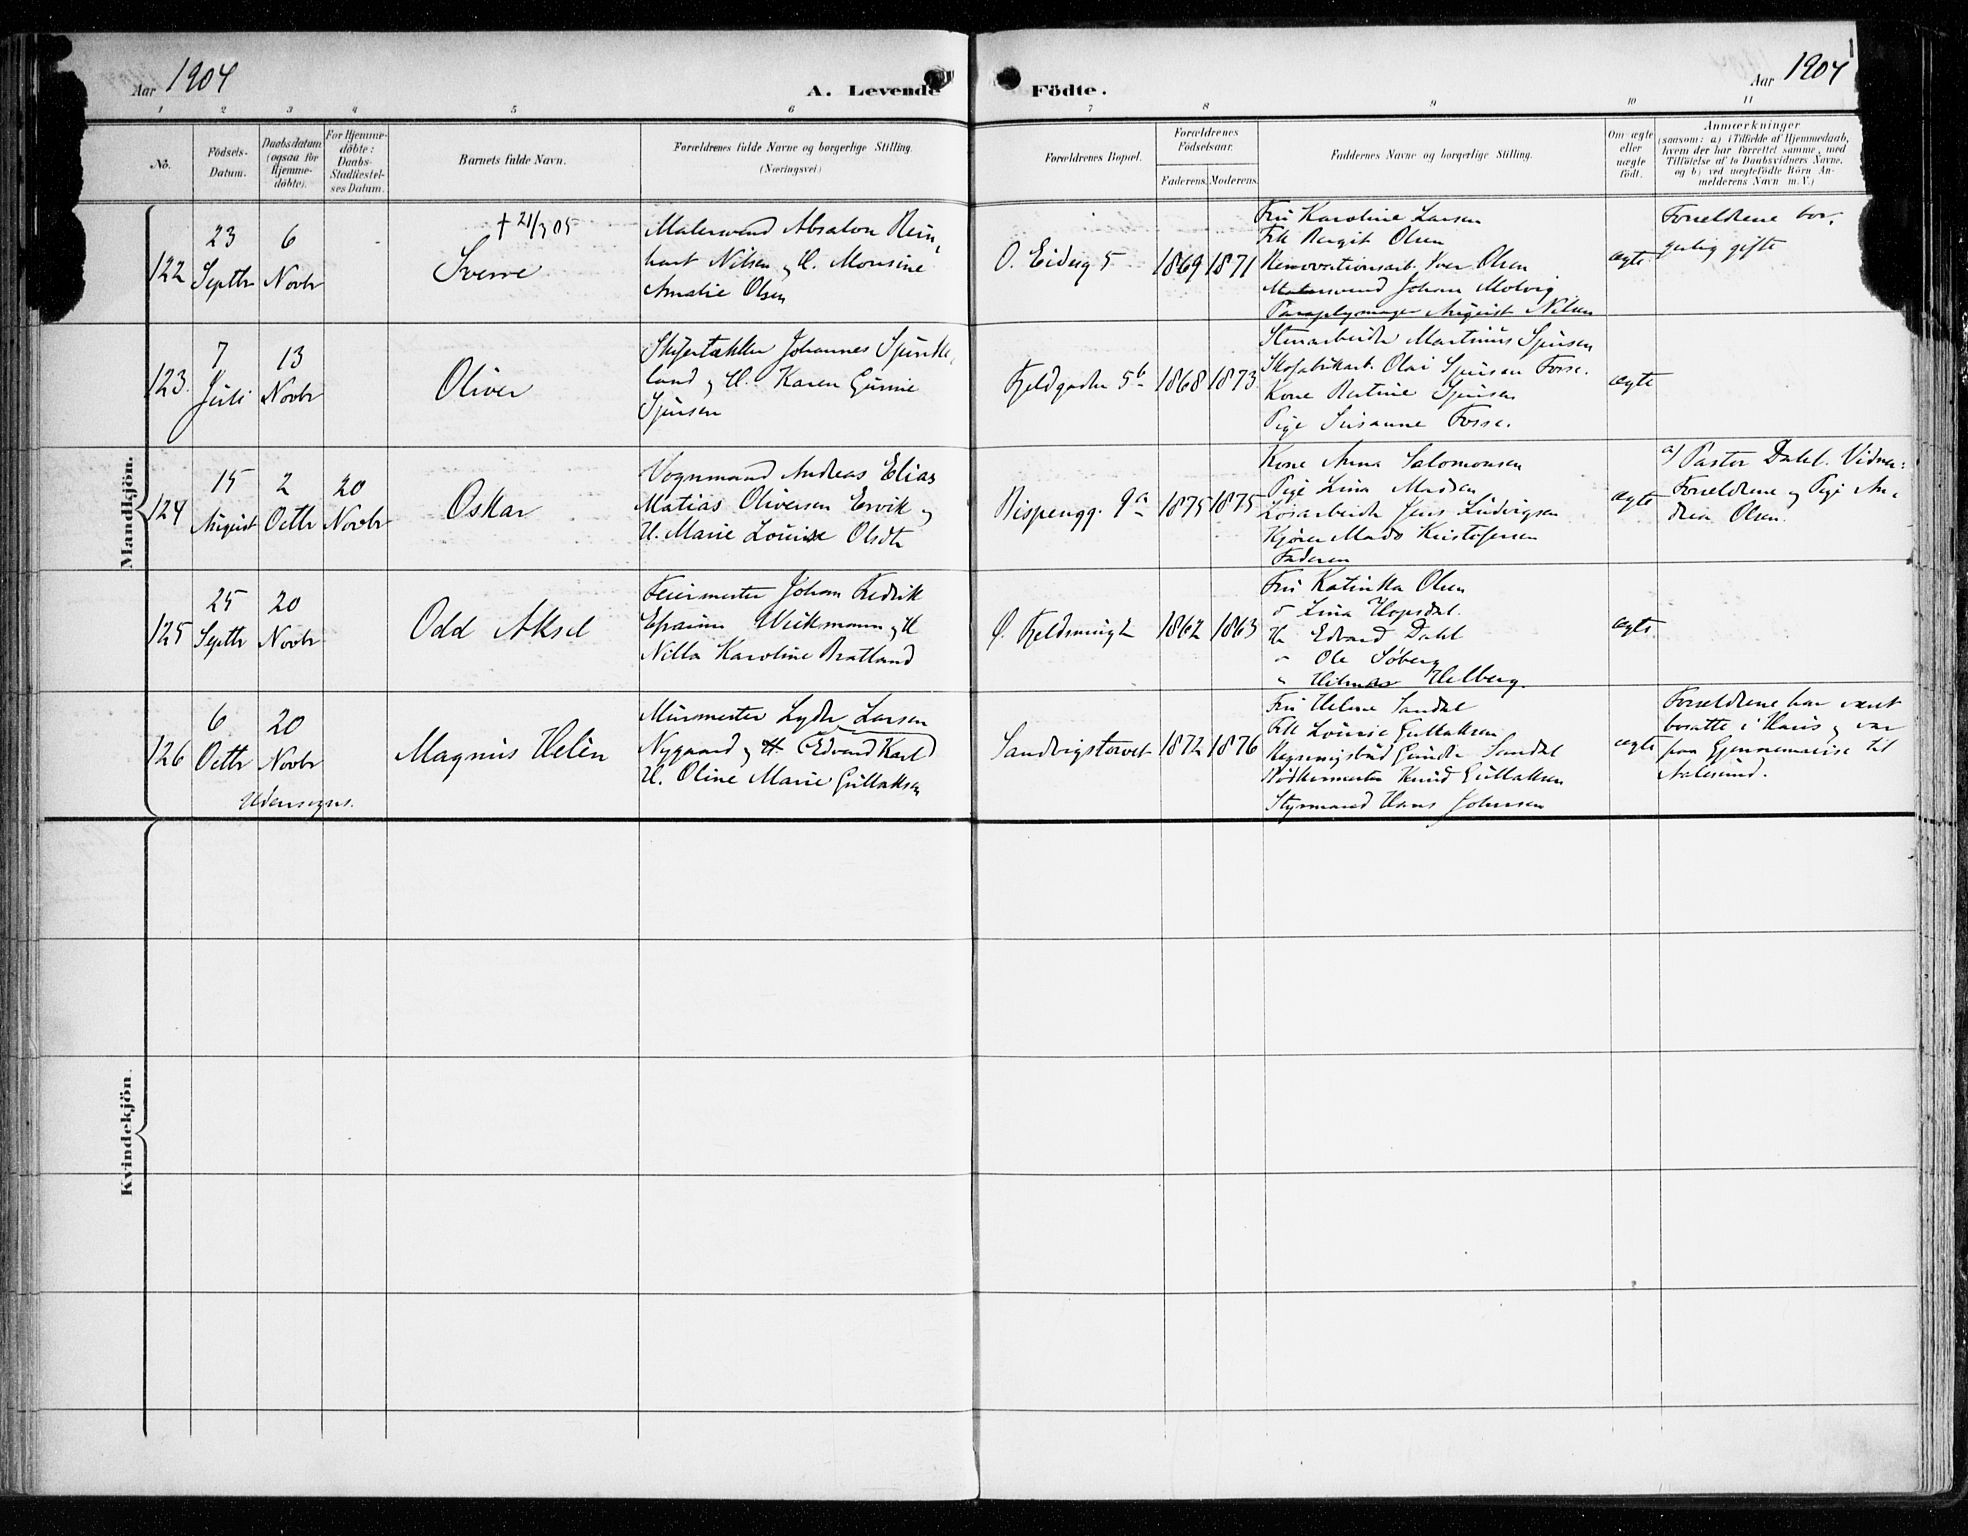 Aar 1904
A. Levende Födte.
Aar 1904
1 2 3 4 5 6 7 8 9 10 11
No.
Födsels-
Datum.
Daabsdatum
(ogsaa for
Hjemme-
döbte).
For Hjemme-
döbte:
Daabs-
Stadfæstel-
ses Datum.
Barnets fulde Navn.
Forældrenes fulde Navne og borgerlige Stilling.
(Næringsvei)
Forældrenes Bopæl.
Forældrenes
Födselsaar.
Faderens. Moderens.
Faddernes Navne og borgerlige Stilling.
Om ægte
eller
uægte
födt.
Anmærkninger
(saasom: a) i Tilfælde af Hjemmedaab,
hvem der har forrettet samme, med
Tilföielse af to Daabsvidners Navne.
og b) ved uægtefödte Börn An-
melderens Navn m. V.)
Mandkjön.
122
23
Septbr
6
Novbr
† 21/3 05
Sverre
Malersvend Absalon Rein-
hart Nilsen og H. Monsine
Amalie Olsen
O. Eidsvg 5
1869 1871
Fru Karoline Larsen
Frk Bergit Olsen
Renovationsarb. Iver Olsen
Malersvend Johan Molvig
Paraplymager August Nilsen
ægte
Forældrene bor-
gerlig gifte
123.
7
Juli
13
Novbr
Oliver
Johannes
land og H. Karen Gurine
Sjursen
Fjeldgaden 5b
1868 1873
Stenarbeider Martinus Sjursen
Skofabrikarb. Olai Sjursen Fosse.
Kone Bertine Sjursen
Pige Susanne Fosse.
ægte
124
15
August
2
Octbr
20
Novbr
Oskar
Vognmand Andreas Elias
Matias Oliversen Ervik og
H. Marie Louise Olsdtr
Rispengg. 9a
1875 1875
Kone Anna Salomonsen
Pige Lina Madsen
Løsarbeider Jens Ludvigsen
Kjører Mads Kristofersen
Faderen
ægte
a) Pastor Dahl. Vidner:
Forældrene og Pige An-
drea Olsen.
125
25
Septbr
20
Novbr
Odd Aksel
Feiermester Johan Fredrik
Efraim Wickmann og H
Nilla Karoline Bratland
Ø. Fjeldsmug 2
1862 1863
Fru Katinka Olsen
" Lina Hopsdal.
Hr Edvard Dahl
" Ole Søberg
" Hilmar Helberg.
ægte.
126
6
Octbr
20
Novbr
Udensogns.
Magnus Helèn
Murmester Lyder Larsen
Nygaard og H (Edvard Karl)
H. Oline Marie Gullaksen
Sandvigstorvet
1872 1876
Fru Helene Sandal
Frk Lovise Gullaksen
Gunder Sandal
Bødkermester Knud Gullaksen
Styrmand Hans Johnsen
ægte
Forældrene har været
bosatte i Haus og var
paa Gjennemreise til
Aalesund.
Kvindekjön.